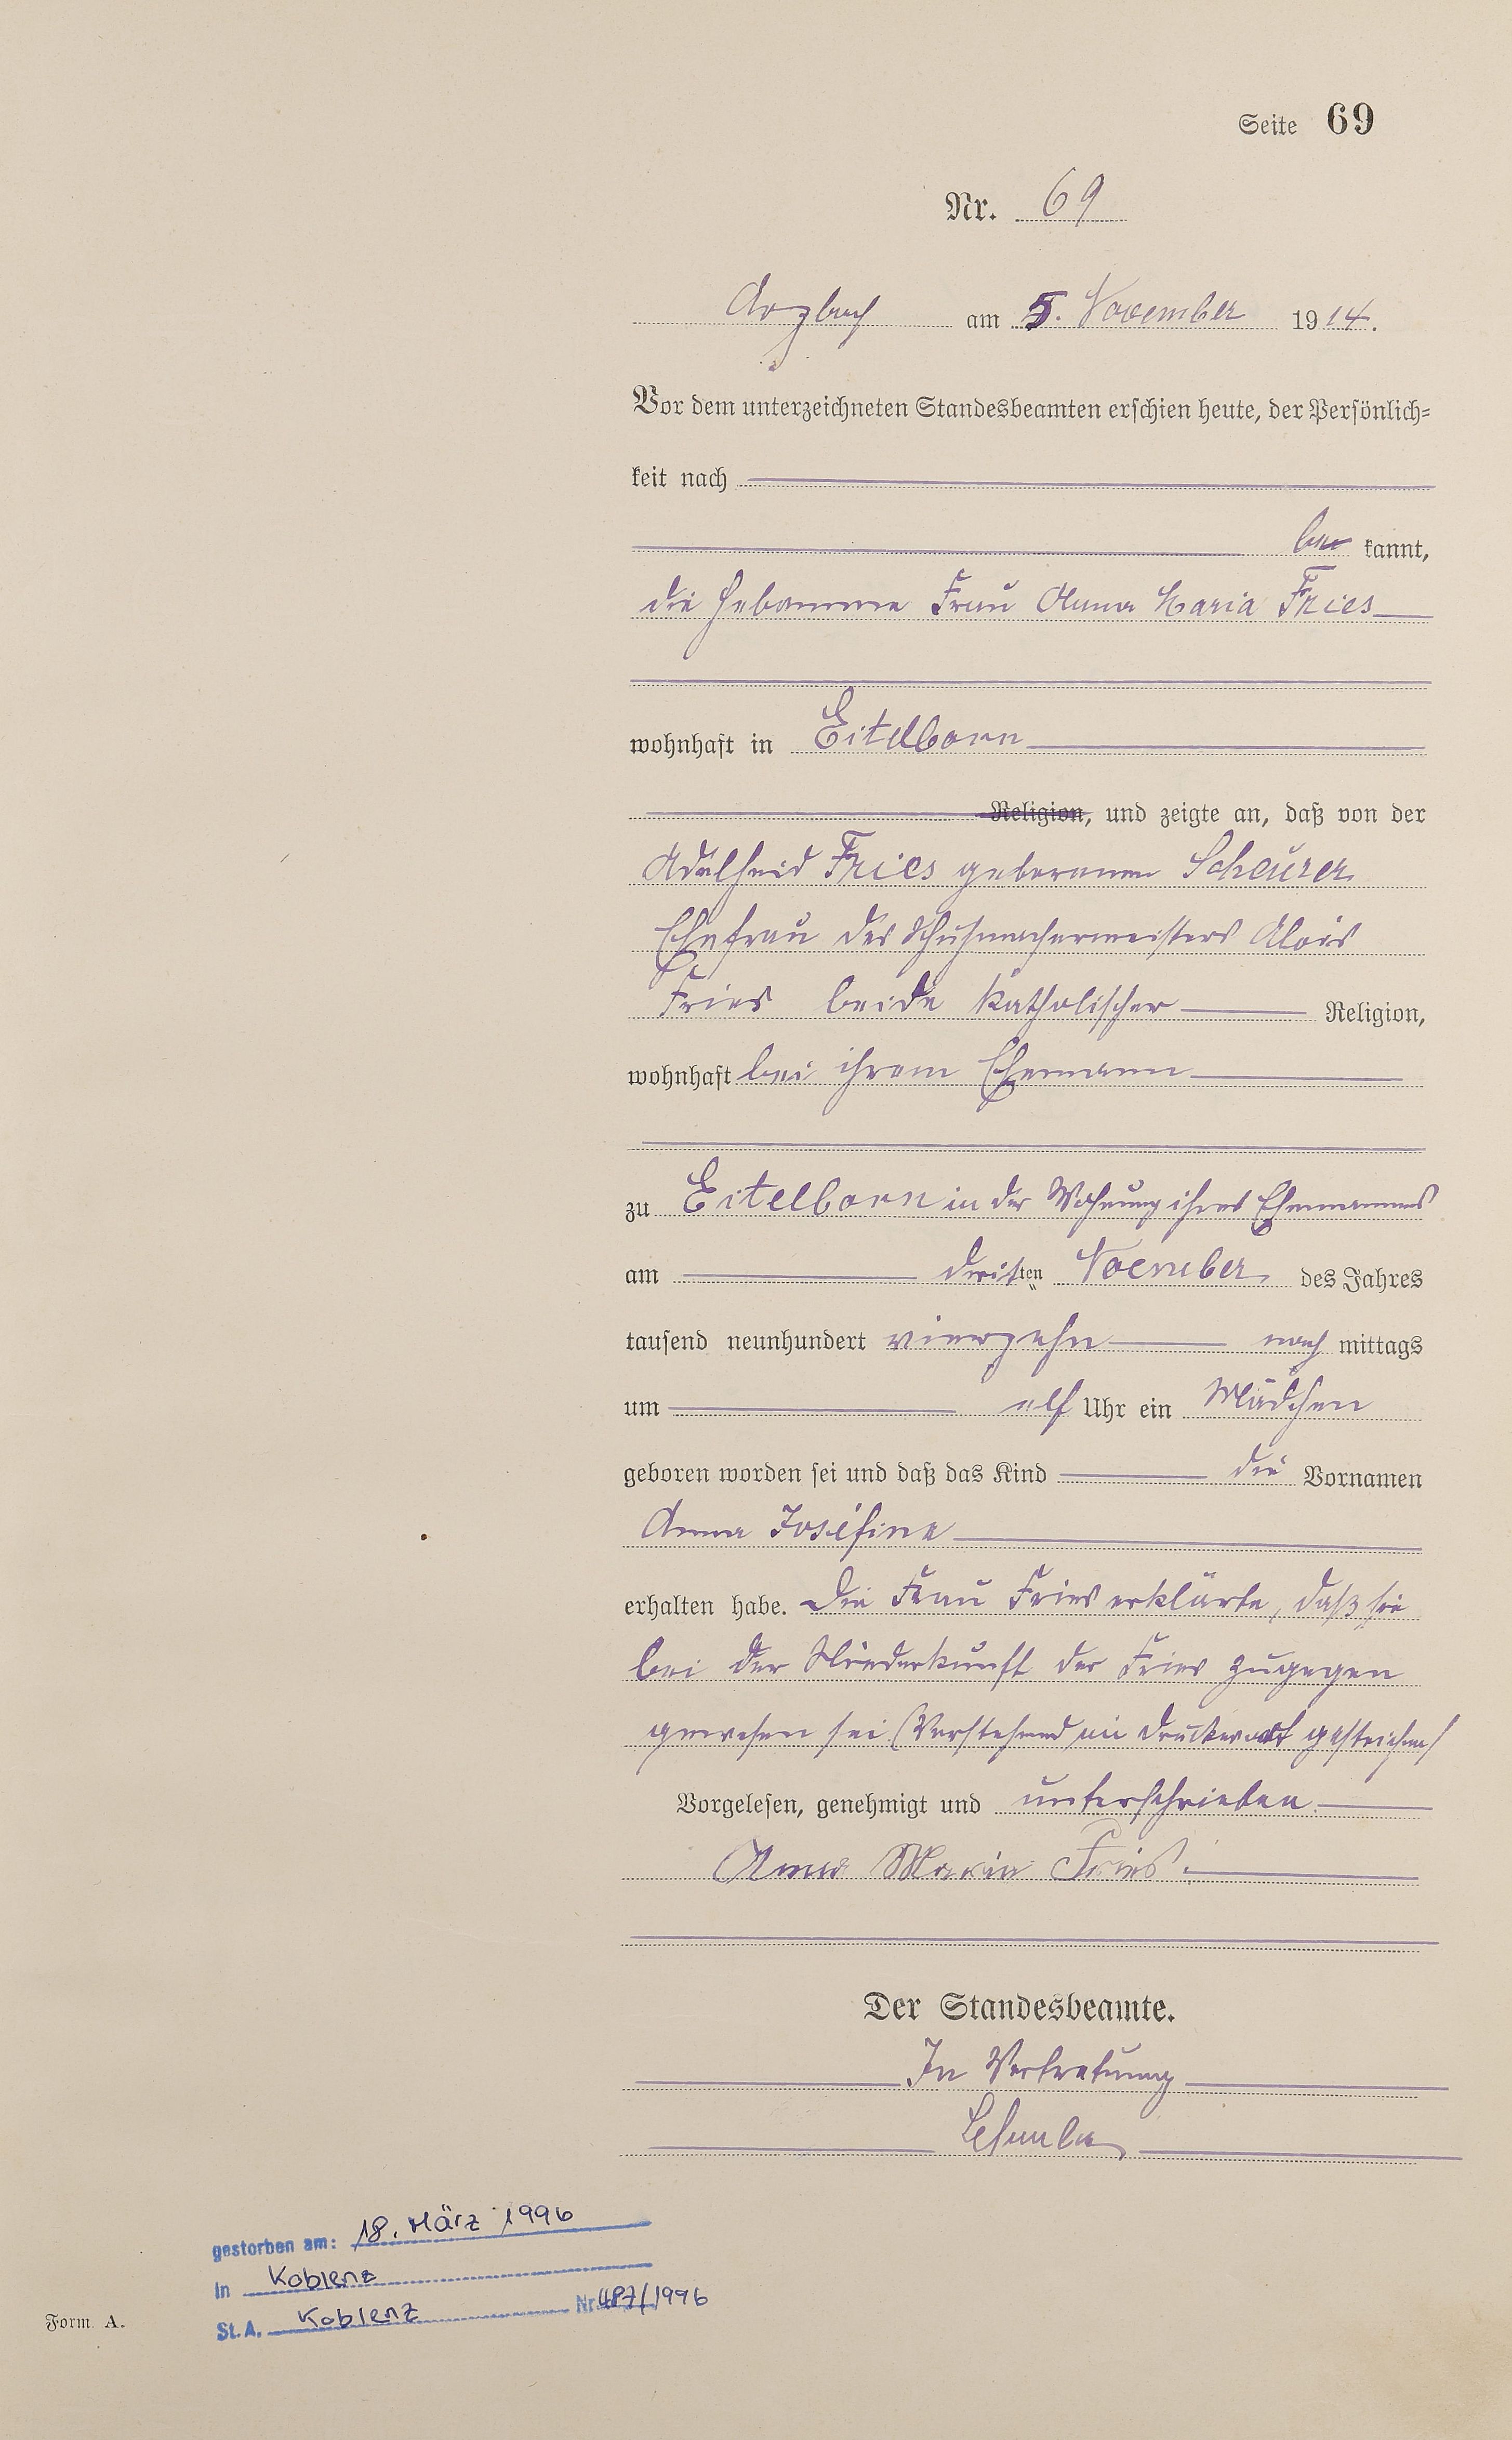 Seite 69
Nr. 69
Arzbach am 5. November 1914.
Vor dem unterzeichneten Standesbeamten erschien heute, der Persönlich-
keit nach
be kannt,
die Hebamme Frau Anna Maria Fries
wohnhaft in Eitelborn
Religion, und zeigte an, daß von der
Adelheid Fries geborenen Scheurer
Ehefrau des Schuhmachermeisters Alois
Fries beide katholischer Religion,
wohnhaft bei ihrem Ehemann
zu Eitelborn in der Wohnung ihres Ehemannes
am dritten Noember des Jahres
tausend neunhundert vierzehn nach mittags
um elf Uhr ein Mädchen
geboren worden sei und daß das Kind die Vornamen
Anna Josefine
erhalten habe. Die Frau Fries erklärte, daß sie
bei der Niederkunft der Fries zugegen
gewesen sei (Vorstehend ein Druckwort gestrichen)
Vorgelesen, genehmigt und unterschrieben.
Anna Maria Fries.
Der Standesbeamte.
In Vertretung
gestorben am: 18. März 1996
in Koblenz
St. A. Koblenz Nr. 487/1996
Form A.